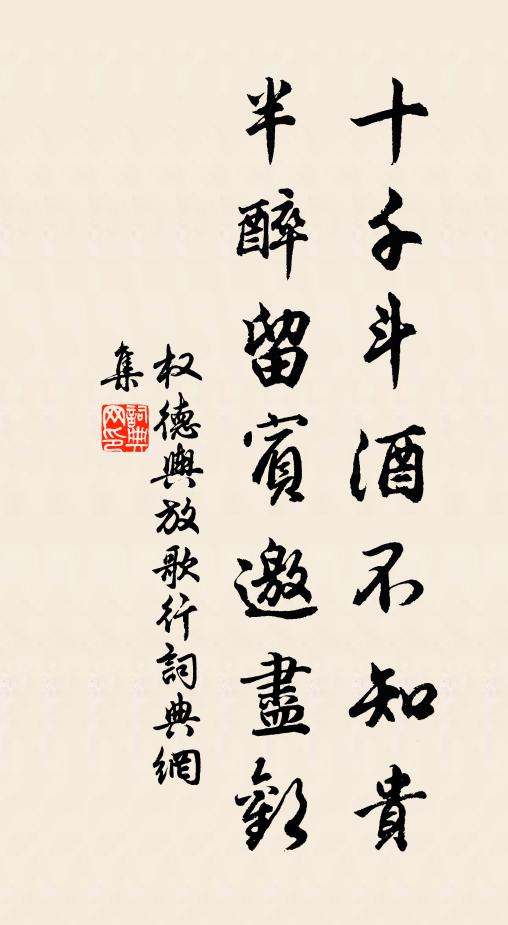 十千斗酒不知貴
半醉留賓邀盡歡
权德輿放歌行詞典網
集
詞典网印